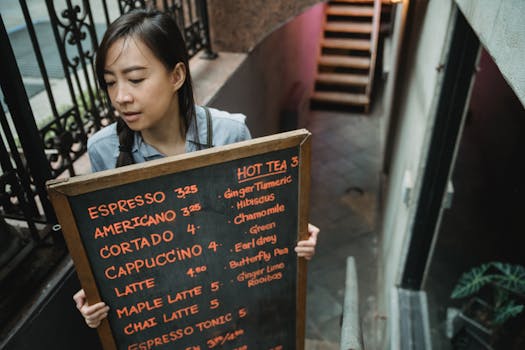 ESPRESSO 3.25
AMERICANO 3.25
CORTADO 4
CAPPUCCINO 4
LATTE 4.50
MAPLE LATTE 5
CHAI LATTE 5
ESPRESSO TONIC 5
HOT TEA 3
· Ginger Turmeric
· Hibiscus
· Chamomile
· Green
· Earl Grey
· Butterfly Pea
· Ginger Lemon
· Rooibos